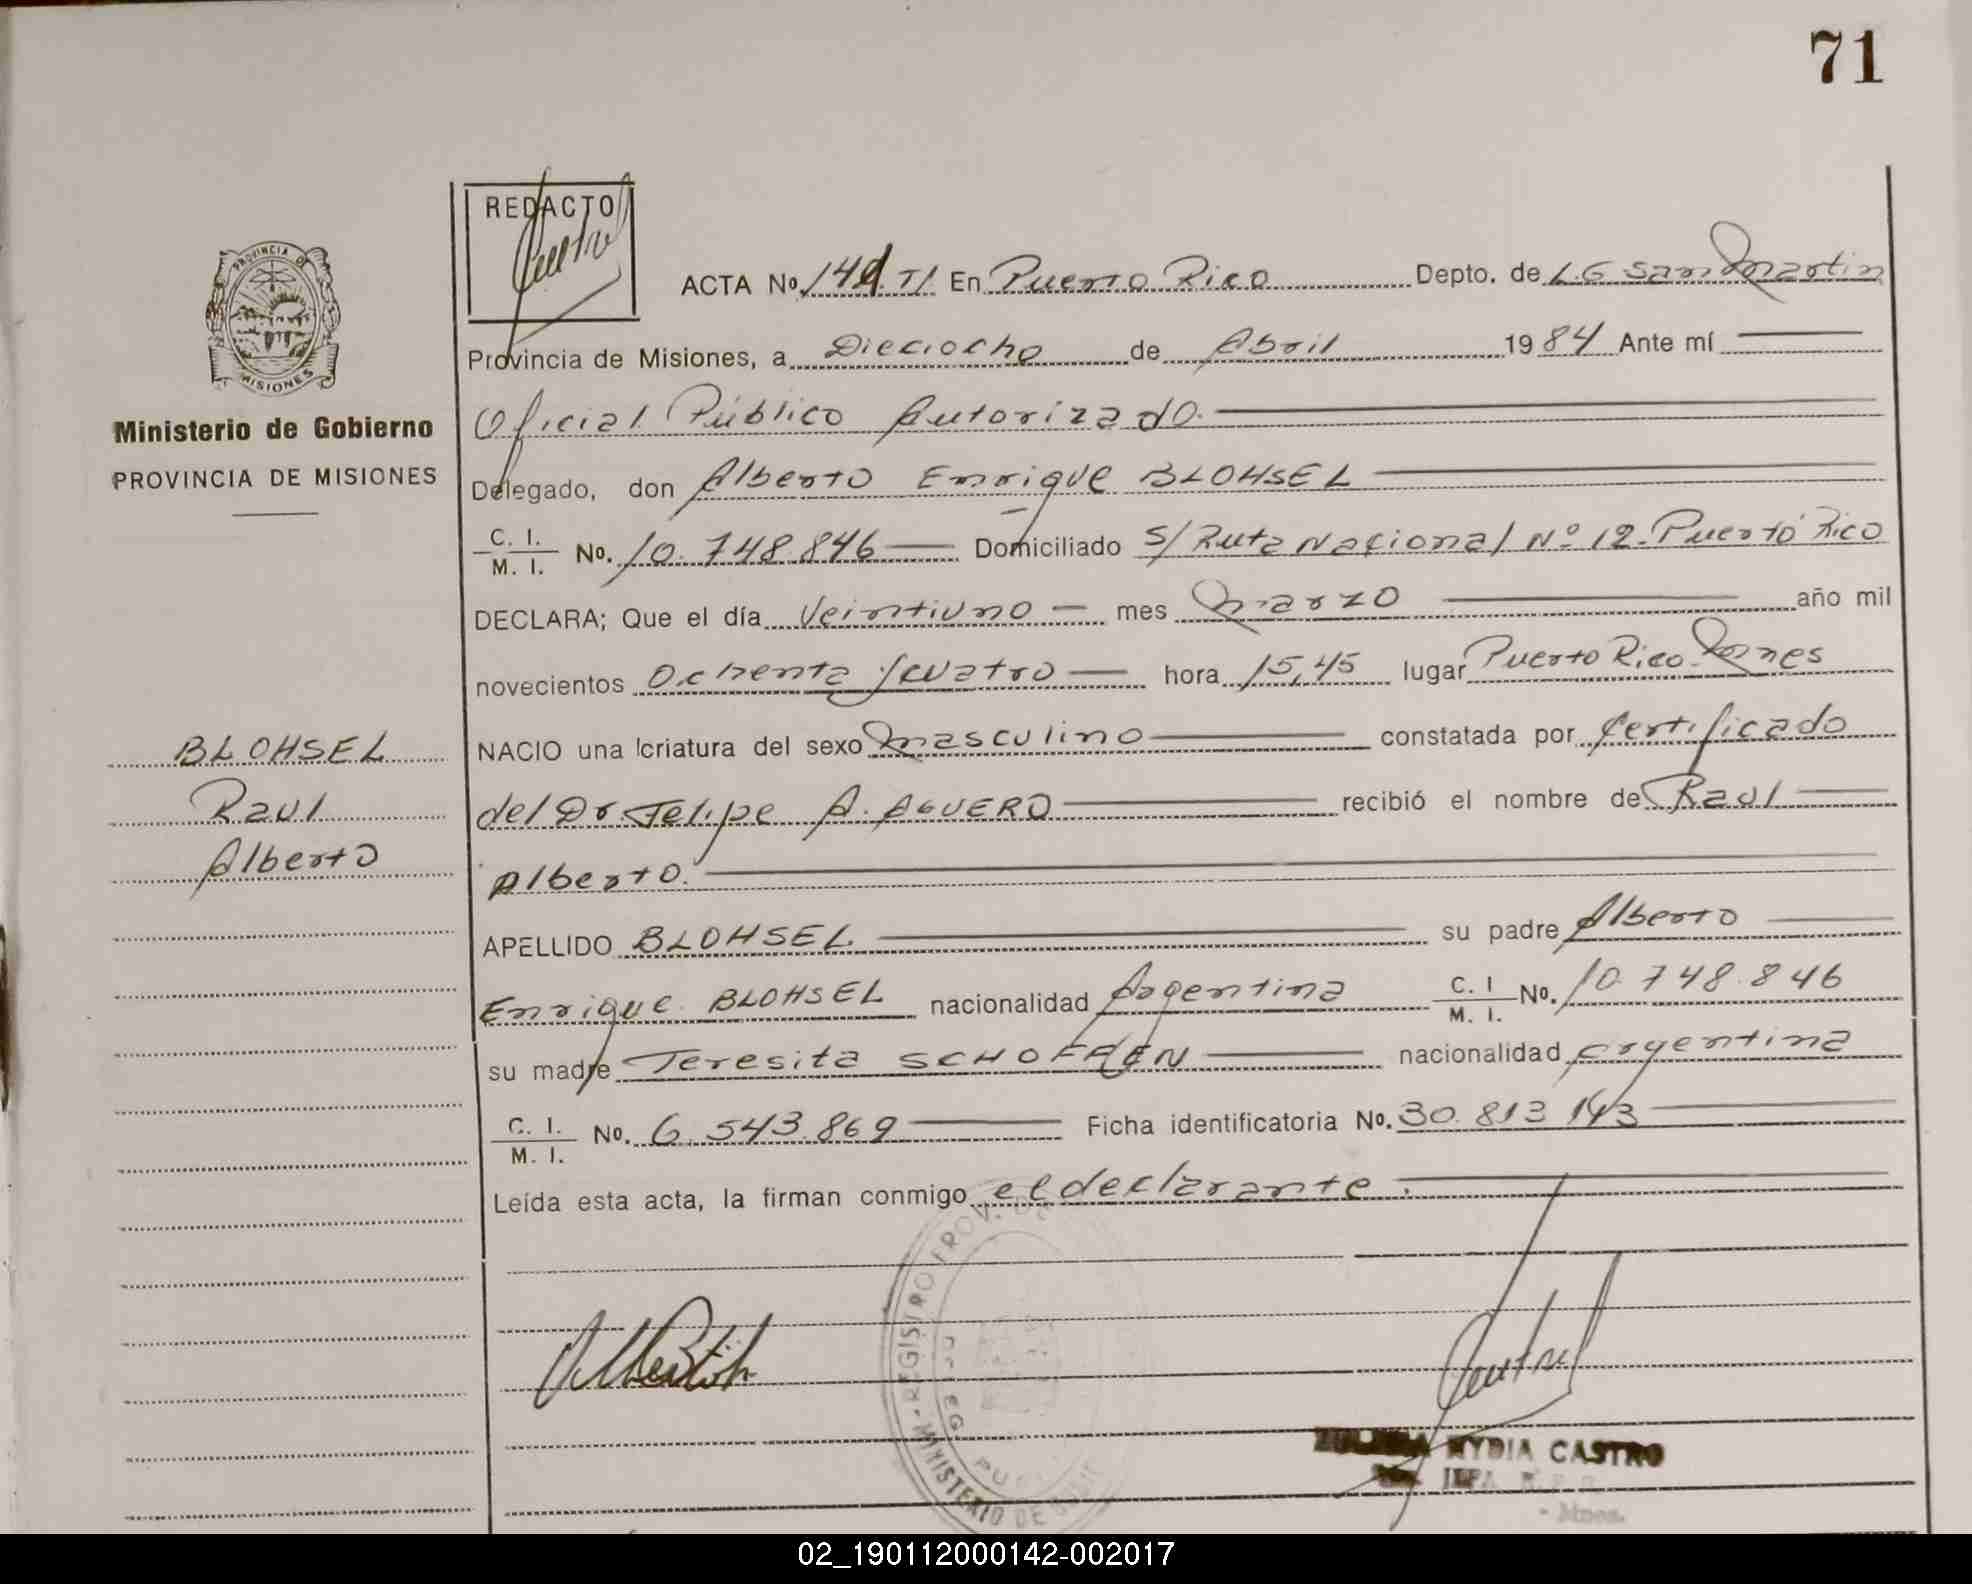 71
REDACTO
PROVINCIA DE
MISIONES
ACTA No. T/ En Puerto Rico Depto. de L.G San Martin
Provincia de Misiones, a Dieciocho de Abril 1984 Ante mí
Ministerio de Gobierno
PROVINCIA DE MISIONES
Oficial Público Autorizado.
Delegado, don Alberto Enrique BLOHSEL
C. I. M. I. No. 10.748.846 Domiciliado S/ Ruta Nacional Nº 12. Puerto Rico
DECLARA; Que el día Veintiuno mes Marzo año mil
novecientos Ochenta y cuatro hora 15,45 lugar Puerto Rico. Mnes
BLOHSEL
Raul
Alberto
NACIO una criatura del sexo Masculino constatada por Certificado
del Dr. Felipe A. AGUERO recibió el nombre de Raul
Alberto.
APELLIDO BLOHSEL. su padre Alberto
Enrique BLOHSEL nacionalidad Argentina C. I M. I. No. 10.748.846
su madre Teresita SCHOFFEN nacionalidad argentina
C. I. M. I. No. 6.543.869 Ficha identificatoria No. 30.813.143
Leída esta acta, la firman conmigo el declarante.
REGISTRO PROV.
MINISTERIO DE
NYDIA CASTRO
Mnes.
02_190112000142-002017